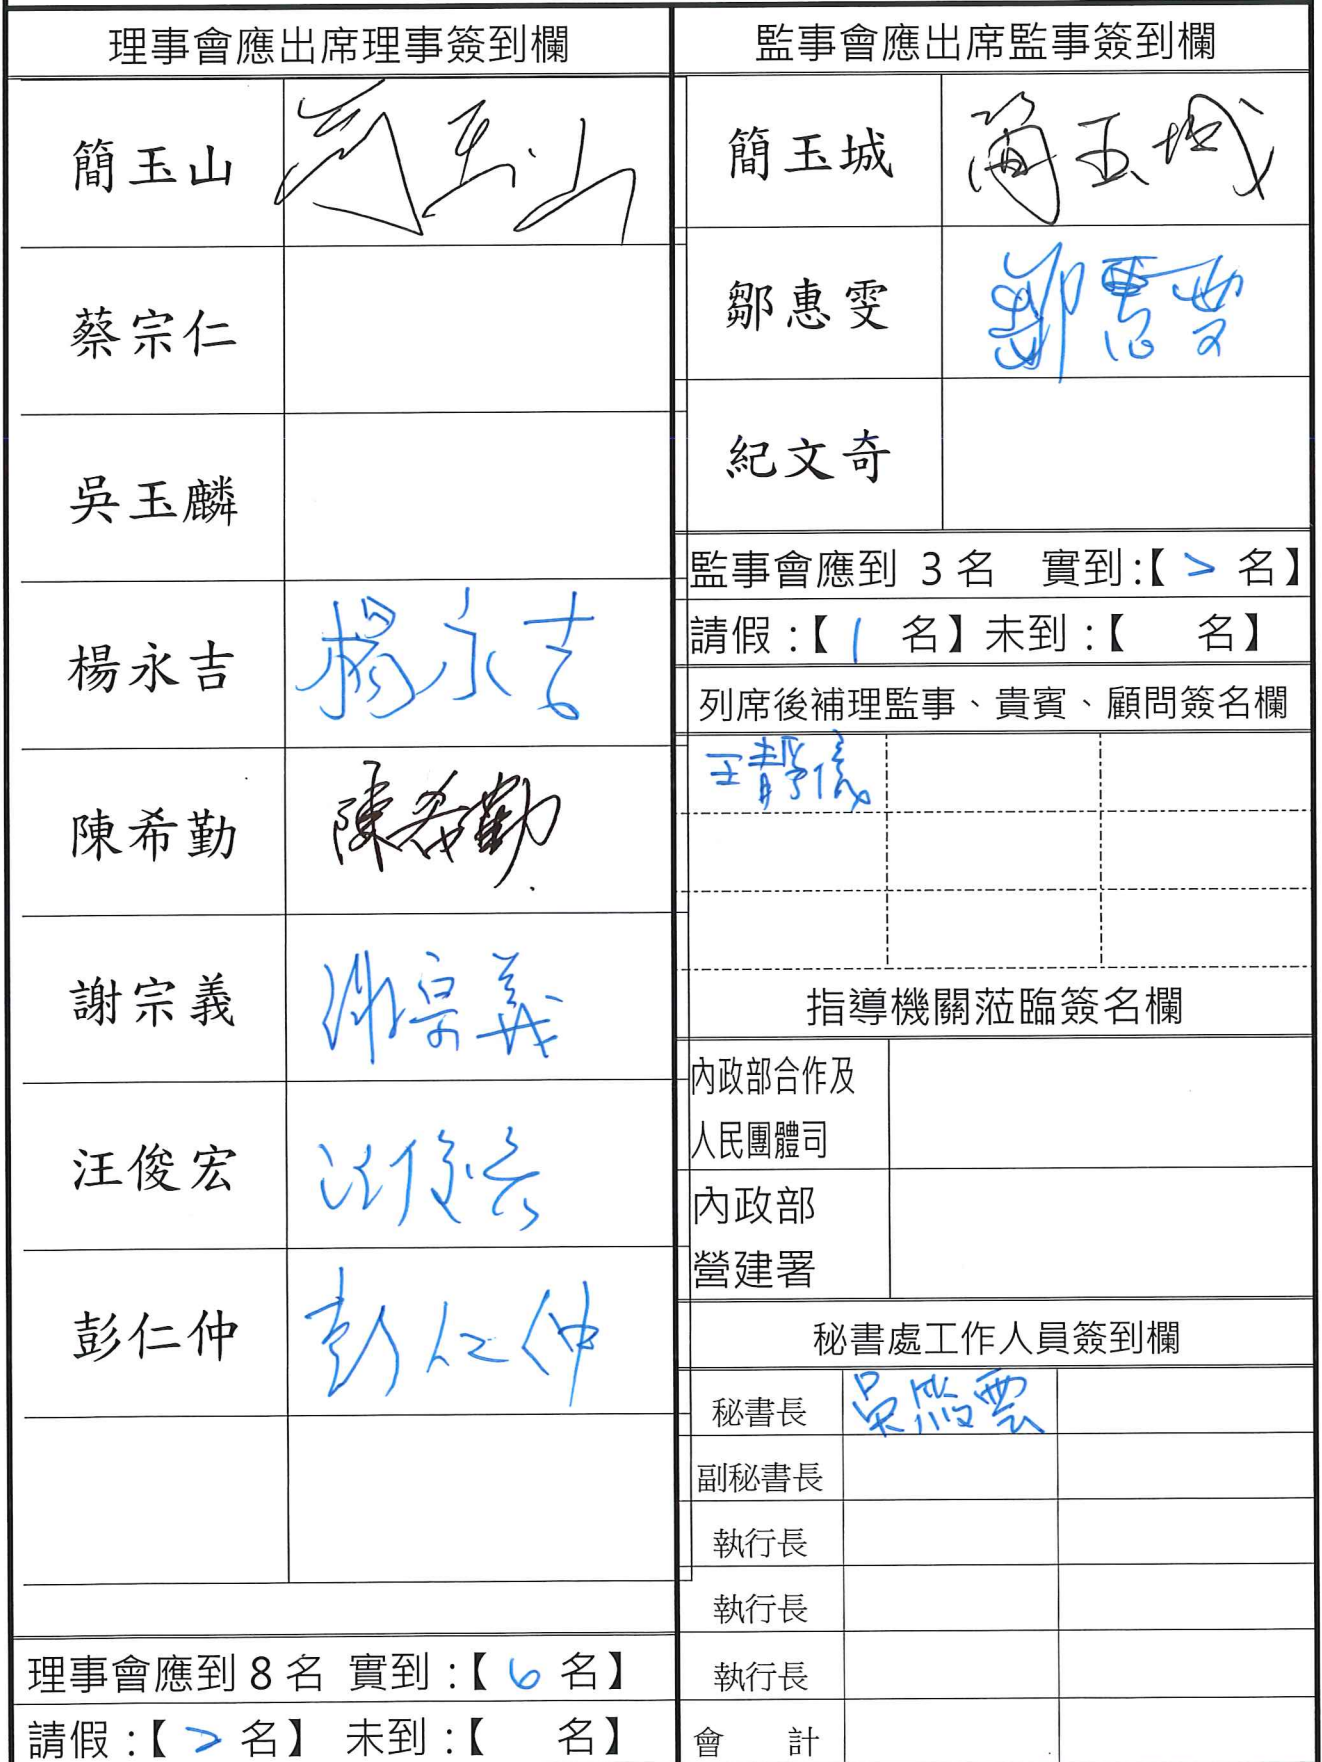 理事會應出席理事簽到欄
簡玉山 簡玉山
蔡宗仁
吳玉麟
楊永吉 楊永吉
陳希勤 陳希勤
謝宗義 謝宗義
汪俊宏 汪俊宏
彭仁仲 彭仁仲
理事會應到 8 名 實到:【 6 名】
請假:【 2 名】 未到:【 名】
監事會應出席監事簽到欄
簡玉城 簡玉城
鄒惠雯 鄒惠雯
紀文奇
監事會應到 3 名 實到:【 2 名】
請假:【 1 名】未到:【 名】
列席後補理監事、貴賓、顧問簽名欄
王靜儀
指導機關蒞臨簽名欄
內政部合作及
人民團體司
內政部
營建署
秘書處工作人員簽到欄
秘書長 吳筱雲
副秘書長
執行長
執行長
執行長
會 計